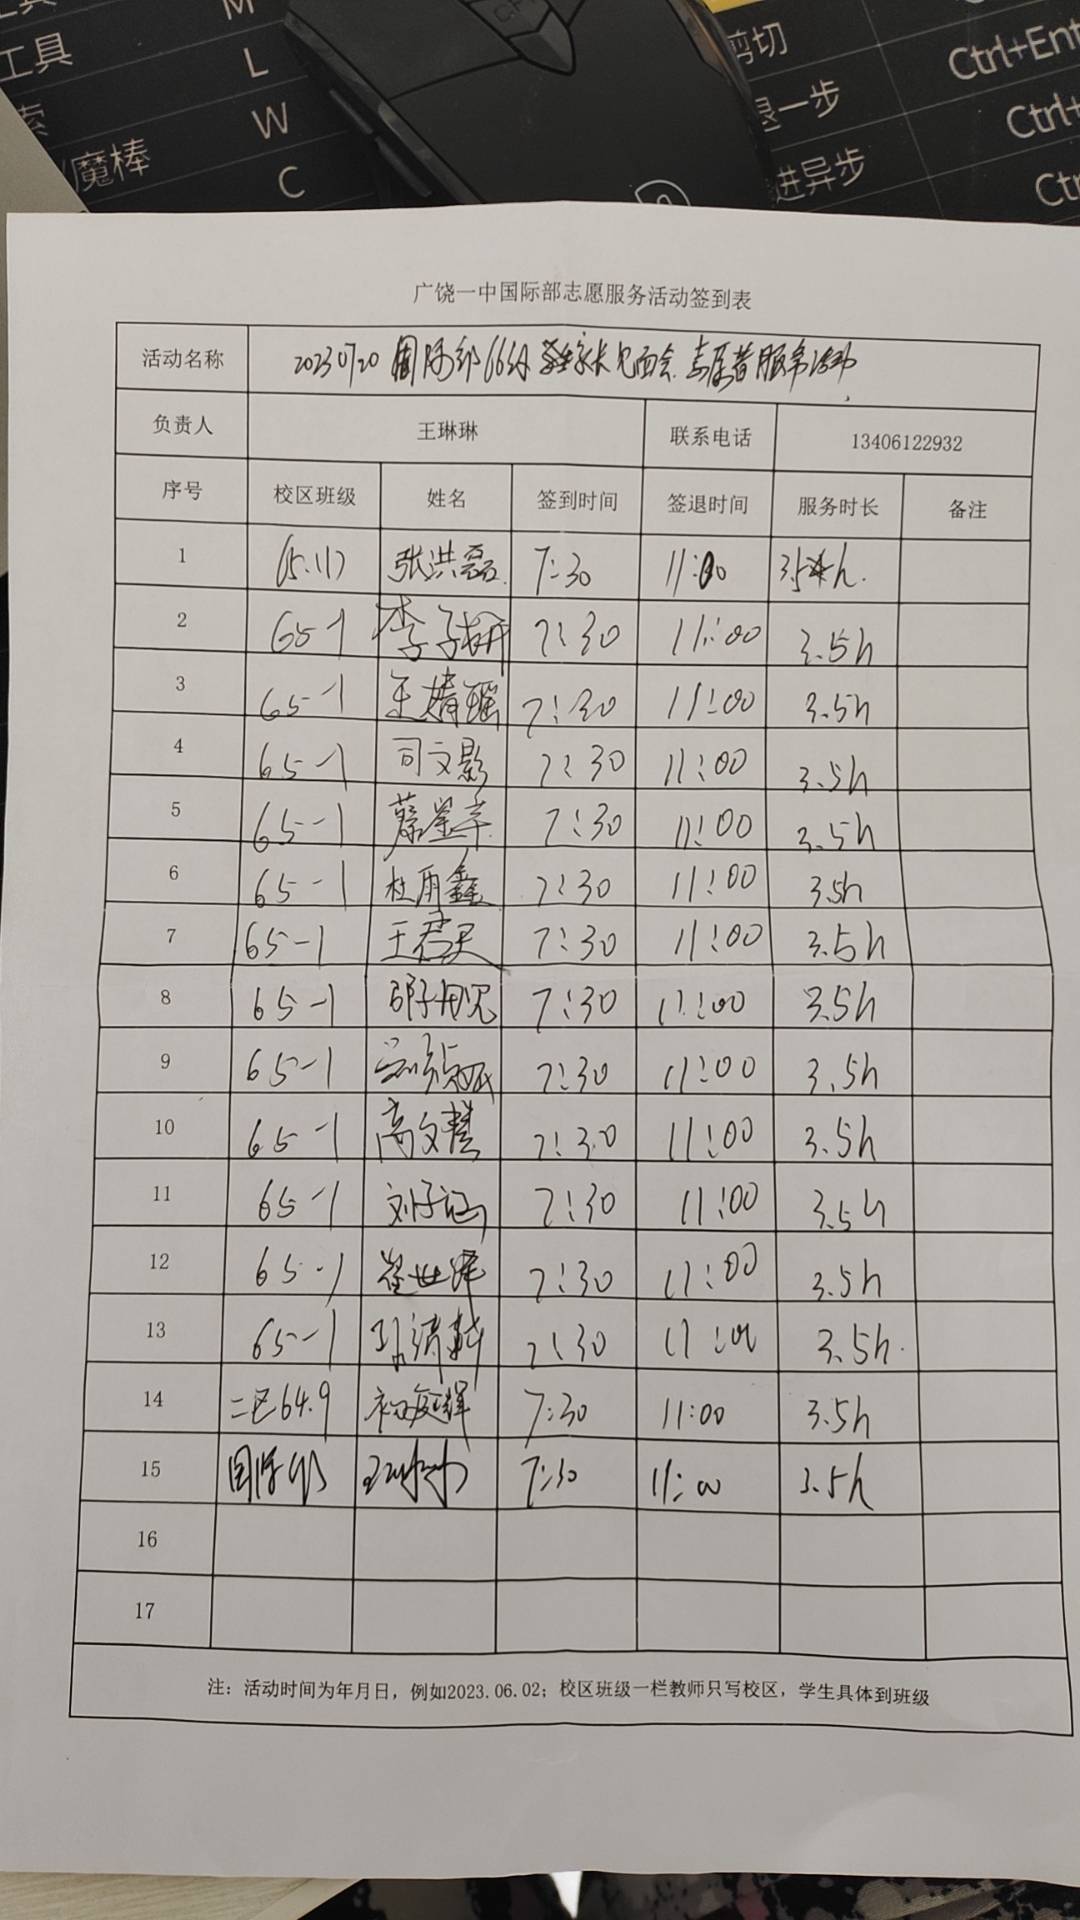 M
工具
L
W
魔棒
C
剪切
退一步
进异步
Ctrl+Ent
Ctrl+
Ctr
广饶一中国际部志愿服务活动签到表
活动名称 20230720 国际部66级 家长见面会 志愿者服务活动
负责人 王琳琳 联系电话 13406122932
序号 校区班级 姓名 签到时间 签退时间 服务时长 备注
1 张洪磊 7:30 11:00 3.5h.
2 65-1 李子妍 7:30 11:00 3.5h
3 65-1 王婧瑶 7:30 11:00 3.5h
4 65-1 司文影 7:30 11:00 3.5h
5 65-1 7:30 11:00 3.5h
6 65-1 杜雨鑫 7:30 11:00 3.5h
7 65-1 王君昊 7:30 11:00 3.5h
8 65-1 7:30 11:00 3.5h
9 65-1 7:30 11:00 3.5h
10 65-1 高文慧 7:30 11:00 3.5h
11 65-1 刘子涵 7:30 11:00 3.5h
12 65-1 崔世泽 7:30 11:00 3.5h
13 65-1 7:30 11:00 3.5h.
14 二区64.9 初庭辉 7:30 11:00 3.5h
15 国际部 王琳琳 7:30 11:00 3.5h
16
17
注：活动时间为年月日，例如2023.06.02；校区班级一栏教师只写校区，学生具体到班级